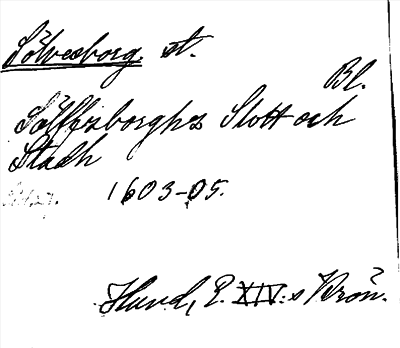 Sölvesborg, st.
Bl.
Sölffzborghs Slott och
Stadh
1603-05.
Hund, E. XIV:s Krön.